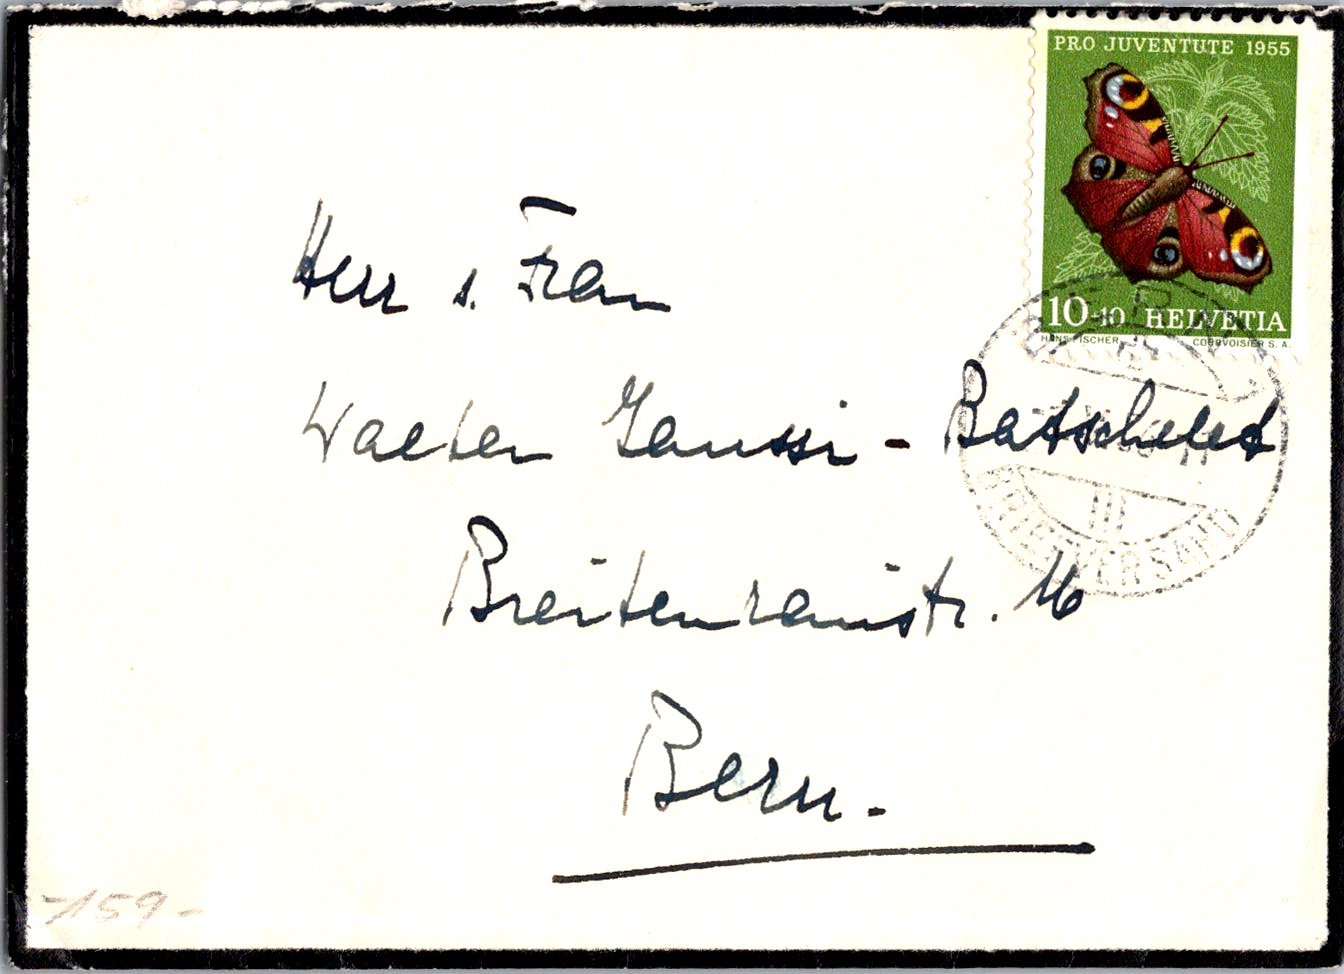 PRO JUVENTUTE 1955
10+10 HELVETIA
HANS FISCHER COURVOISIER S.A.
BERN
III
BRIEFVERSAND
Herr u. Frau
Walter Jaussi - Batschelet
Breitenrainstr. 16
Bern.
159-